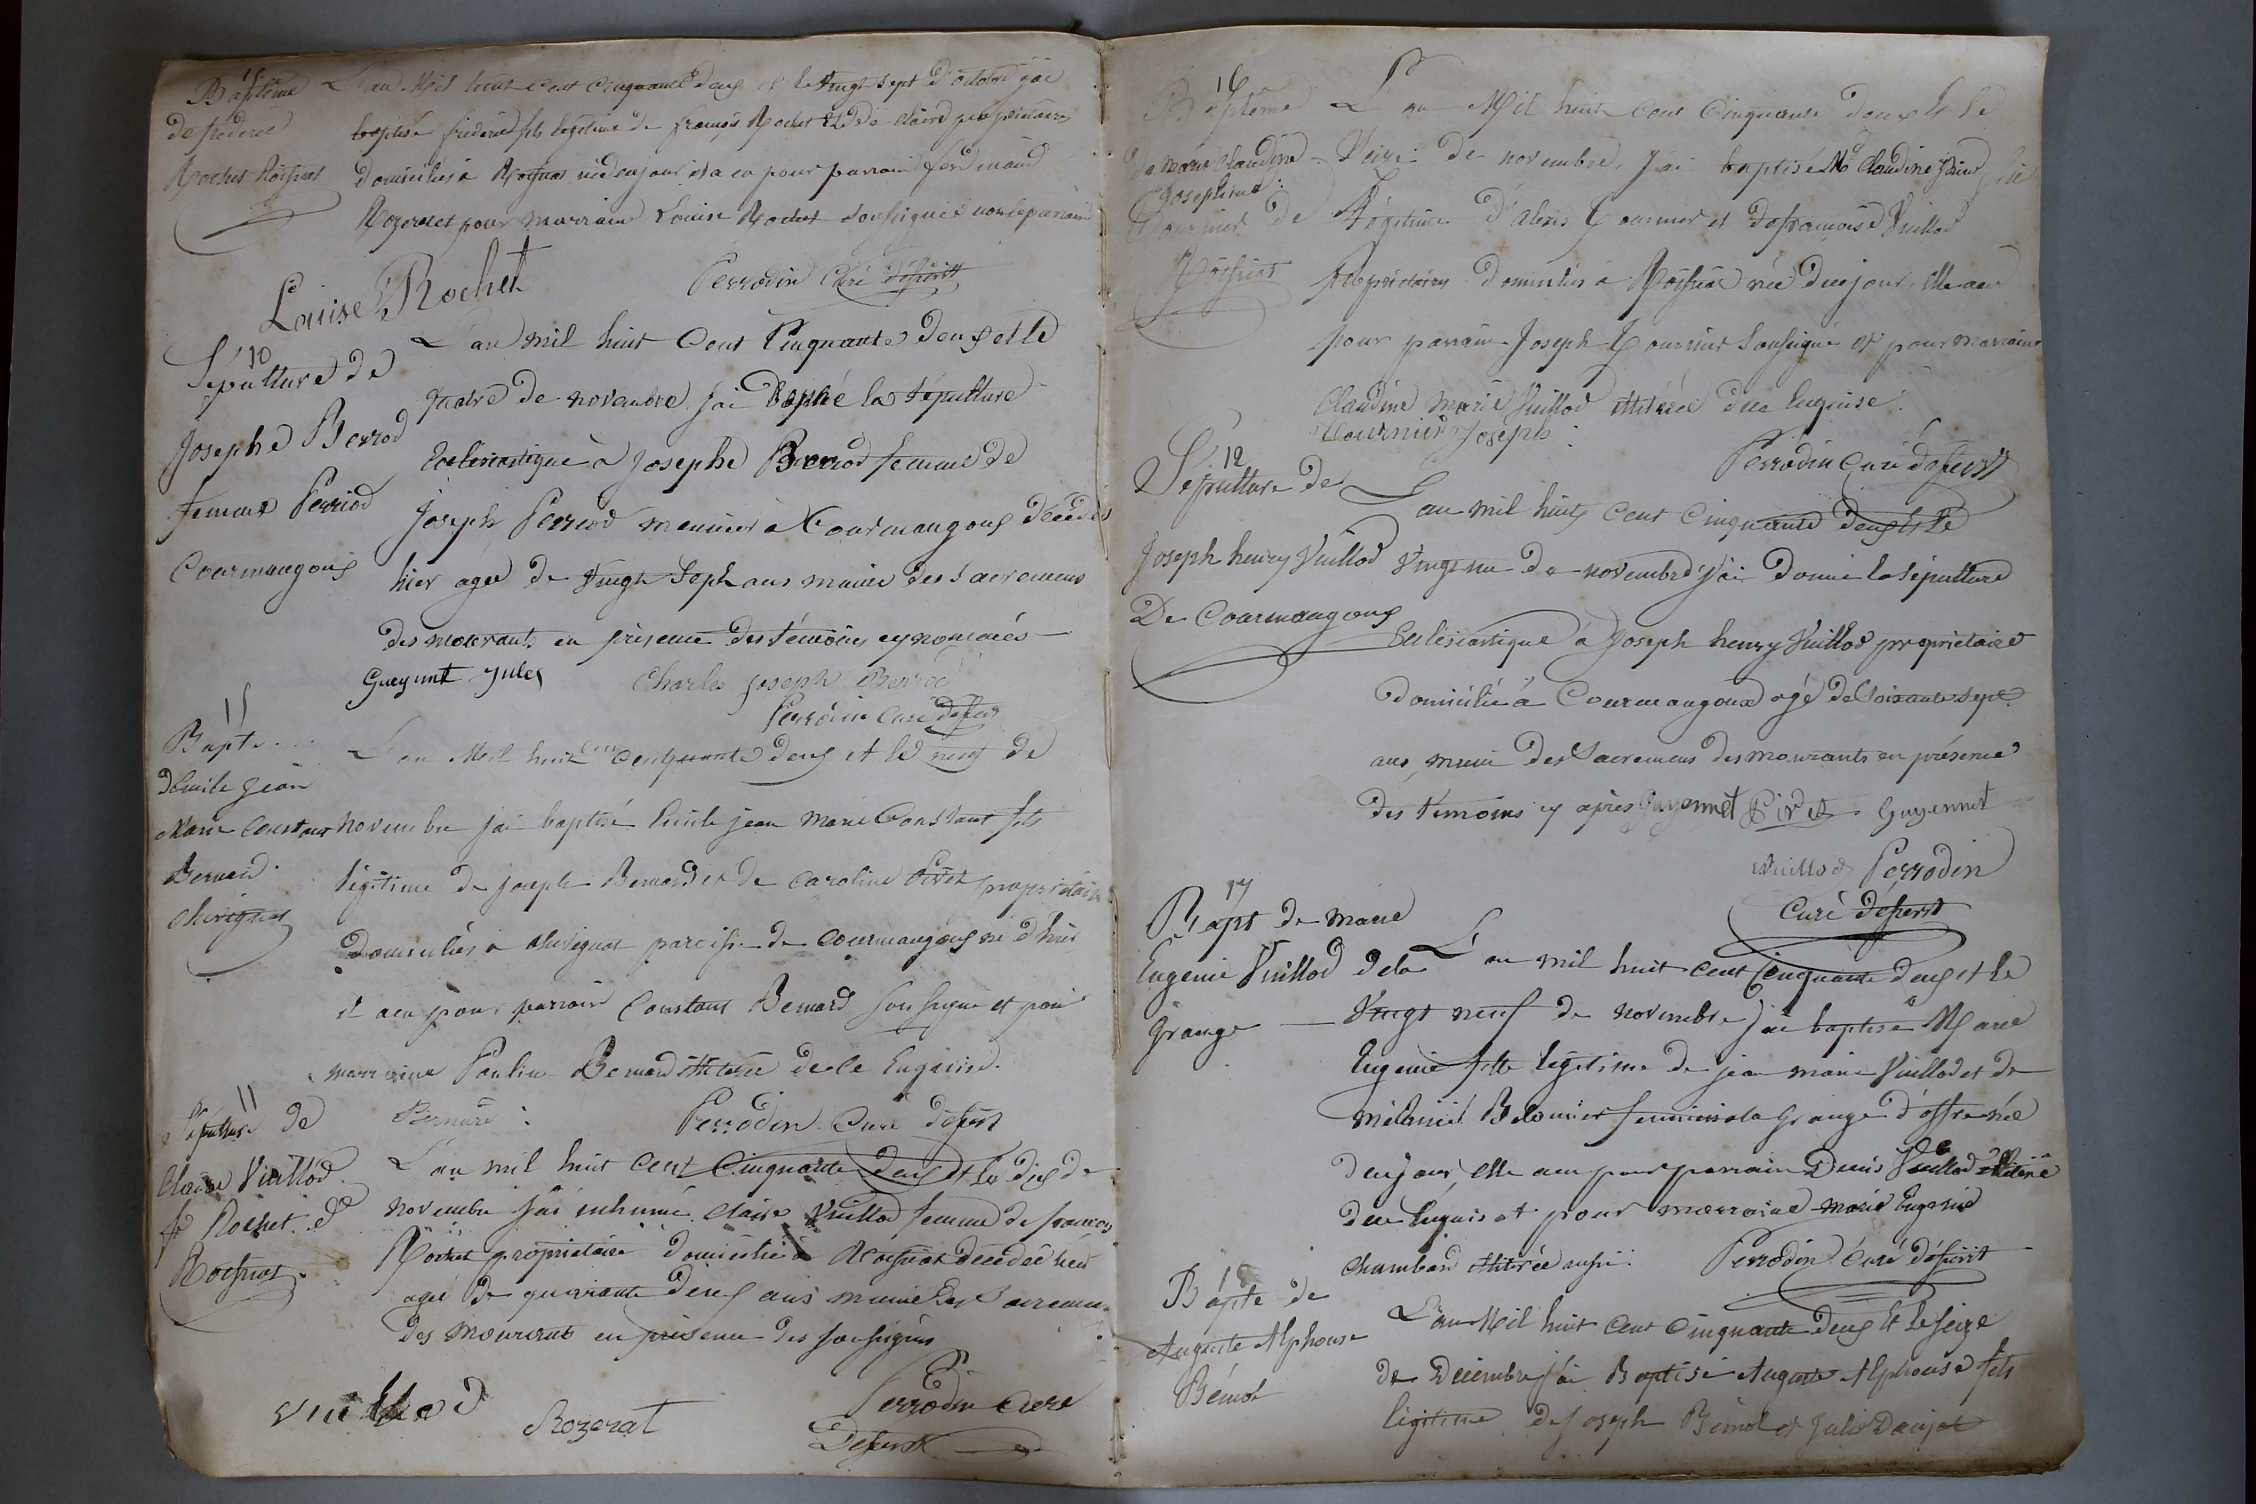 Baptême
de frederic
Rochet Roissiat
L'an Mil huit cent cinquante deux et le vingt sept d'octobre j'ai
baptisé frederic fils legitime de françois Rochet et de claire propriétaires
domiciliés à Roissiat né de ce jour il a eu pour parrain ferdinand
Rozerat et pour marraine Louise Rochet Soussignés non le parrain
Louise Rochet
Perrodin Curé
10
Sépulture de
Josephe Berrod
femme Perriod
Courmangoux
L'an mil huit Cent Cinquante deux et le
quatre de novembre j'ai la sépulture
Ecclésiastique à Josephe Berrod femme de
Joseph Perriod meunier à Courmangoux décédée
hier agée de Vingt Sept ans munie des Sacremens
des mourants en présence des témoins cy nommés
Guyennet Jules
Charles Joseph Berrod
Perrodin Curé
15
Bapte
d'Emile Jean
Marie Constant
Bernard
Chevignat
L'an Mil huit cent cinquante deux et le neuf de
novembre j'ai baptisé Emile jean Marie Constant fils
légitime de Joseph Bernard et de Caroline Pivet propriétaires
domiciliés à chevignat paroisse de Courmangoux né d'hier
il a eu pour parrain Constant Bernard Soussigné et pour
marraine Pauline Bernard illiterée de ce Enquise.
Bernard
Perrodin Curé
11
Sépulture de
Claire Vuillod
fe Rochet de
Roissiat
L'an mil huit cent Cinquante Deux et le dix de
novembre j'ai inhumé Claire Vuillod femme de françois
Rochet propriétaire domicilié à Roissiat décédée hier
agée de quarante deux ans munie des Sacremens
des mourans en présence des soussignés
Vuillod
Rozerat
Perrodin curé
16
Baptême
de Marie Claudine
Josephine
Fournier de
Roissiat
L'an Mil huit Cent Cinquante deux et le
Seize de novembre, j'ai baptisé Me Claudine fille
Légitime d'alexis Fournier et de françoise Vuillod
Propriétaires domiciliés à Roissiat née de ce jour, elle a eu
pour parrain Joseph Fournier Soussigné et pour marraine
Claudine Marie Vuillod illiterée de ce Enquise.
Fournier Joseph
Perrodin Curé
12
Sépulture de
Joseph henry Vuillod
De Courmangoux
L'an mil huit Cent Cinquante deux et le
Vingt un de novembre j'ai donné la sépulture
Ecclésiastique à Joseph henry Vuillod propriétaire
domicilié à Courmangoux agé de Soixante sept
ans, muni des Sacremens des mourants en présence
des témoins cy après Guyennet Pivet Guyennet
Vuillod Perrodin
Curé
17
Bapt de Marie
Eugenie Vuillod de la
Grange
L'an mil huit cent Cinquante deux et le
Vingt neuf de novembre j'ai baptisé Marie
Eugenie fille légitime de jean marie Vuillod et de
mélanie fermiers à la Grange née
de ce jour, elle a eu pour parrain Denis Vuillod illiteré
de ce Enquis et pour marraine marie Eugenie
Chambard illiterée aussi.
Perrodin Curé
18
Bapte de
Auguste Alphonse
Bémol
L'an Mil huit Cent Cinquante deux et le Seize
de Decembre j'ai Baptisé Auguste Alphonse fils
légitime de Joseph Bémol et Julie Daujat